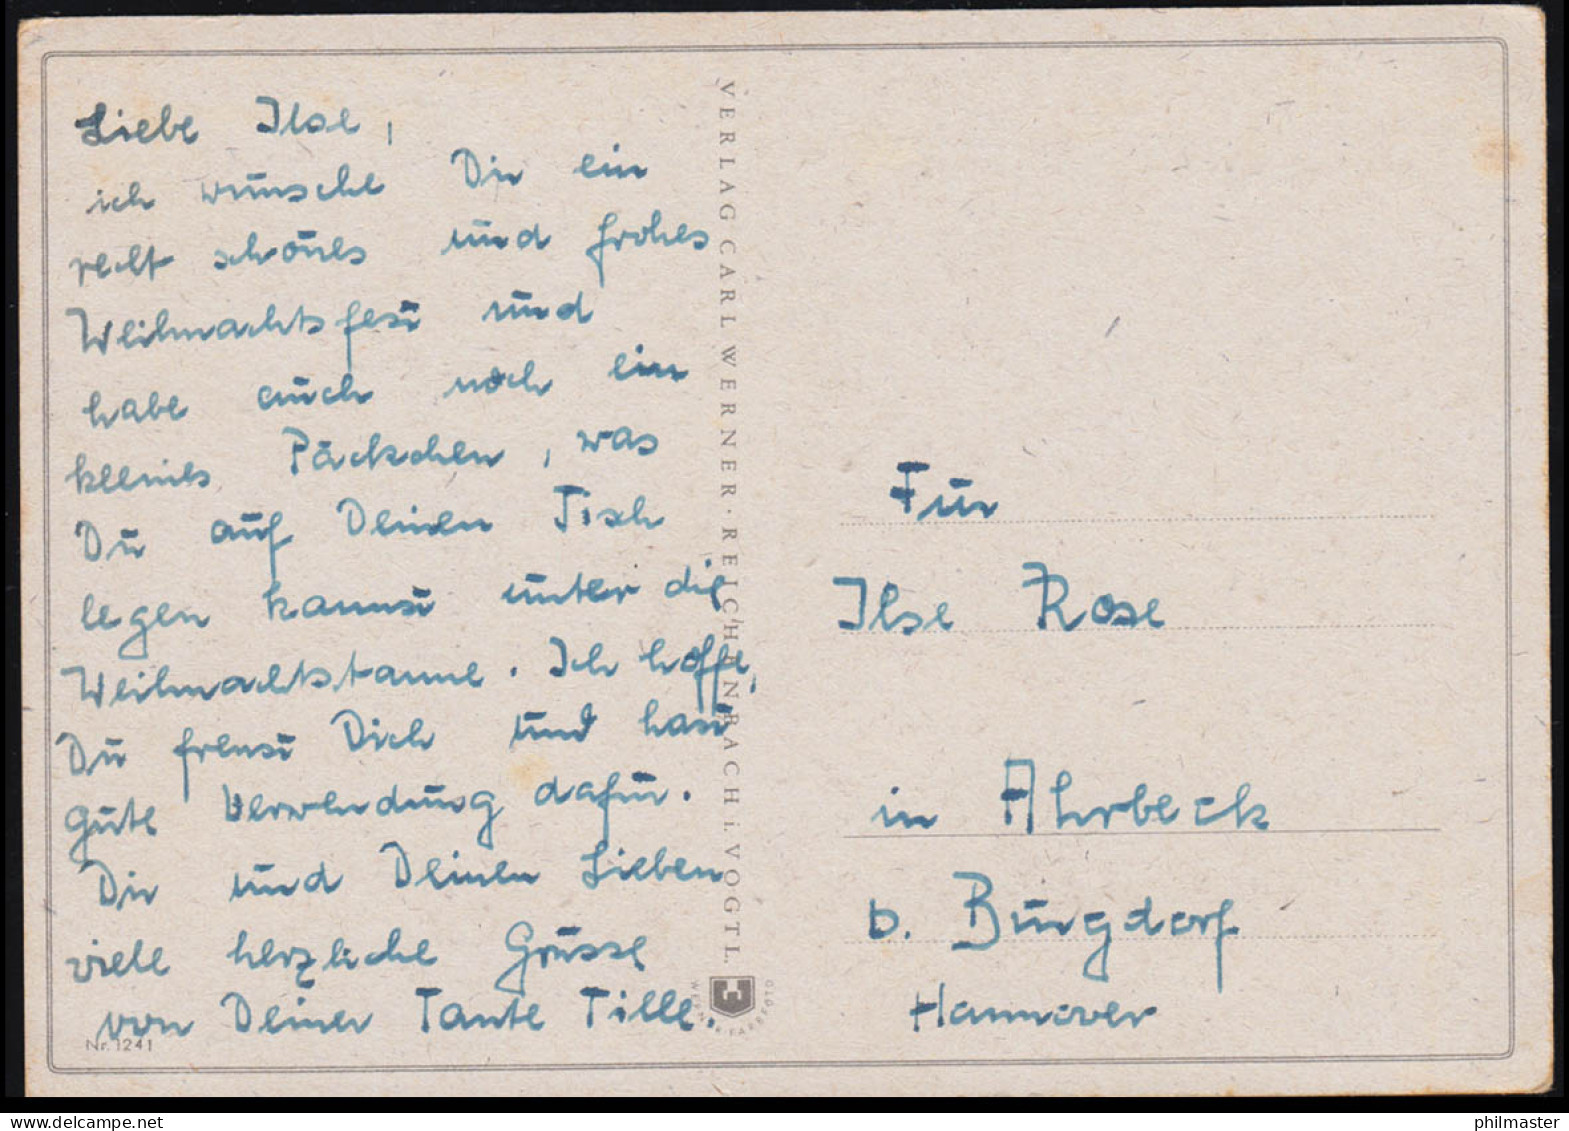 Liebe Ilse,
ich wünsche Dir ein
recht schönes und frohes
Weihnachtsfest und
habe auch noch ein
kleines Päckchen, was
Du auf Deinen Tisch
legen kannst unter die
Weihnachtstanne. Ich hoffe,
Du freust Dich und hast
gute Verwendung dafür.
Dir und Deinen Lieben
viele herzliche Grüsse
von Deiner Tante Tille.
Nr. 1241
VERLAG CARL WERNER · REICHENBACH i. VOGTL.
WERNER FARBFOTO
Für
Ilse Rose
in Ahrbeck
b. Burgdorf
Hannover
philmaster